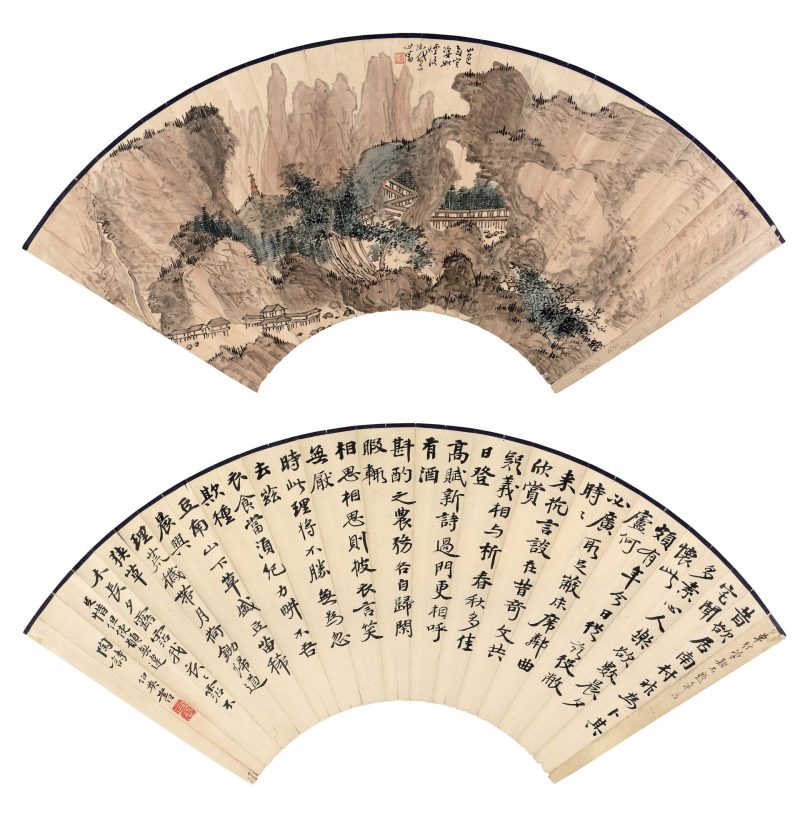 山色
心畬
昔欲居南村非為卜其
宅聞
多素心人樂與數晨夕
懷此
頗有年今日從茲役敝
廬何
必廣取足蔽床席鄰曲
時〻
來抗言談在昔奇文共
欣賞
疑義相與析 春秋多佳
日登
高賦新詩過門更相呼
有酒
斟酌之農務各自歸閑
暇輒
相思相思則披衣言笑
無厭
時此理將不勝無為忽
去茲
衣食當須紀力畊不吾
欺種
豆南山下草盛豆苗稀
晨興
理荒穢帶月荷鋤歸道
狹草
木長夕露霑我衣〻霑不
足惜但使願無違
陶詩